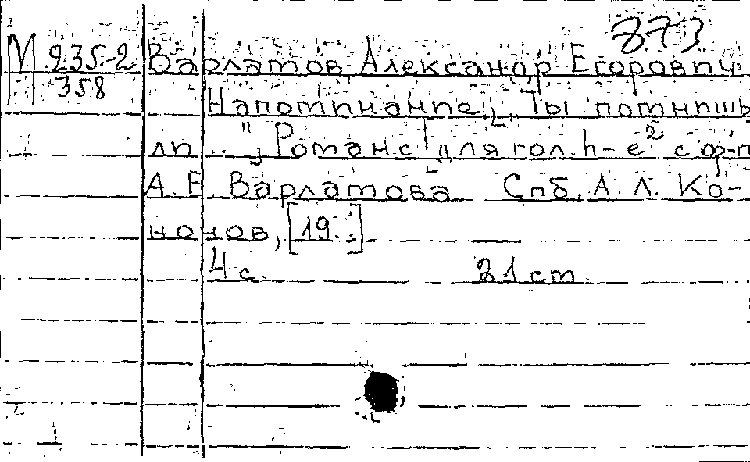 873
М 235-2 Варламов Александр Егорович
358 Напоминание. „Ты помнишь
ли..." Романс для гол. h-e² с ф-п
А. Е. Варламова Спб. А. Л. Ко-
нонов, [19..]
4 с. 21 cm